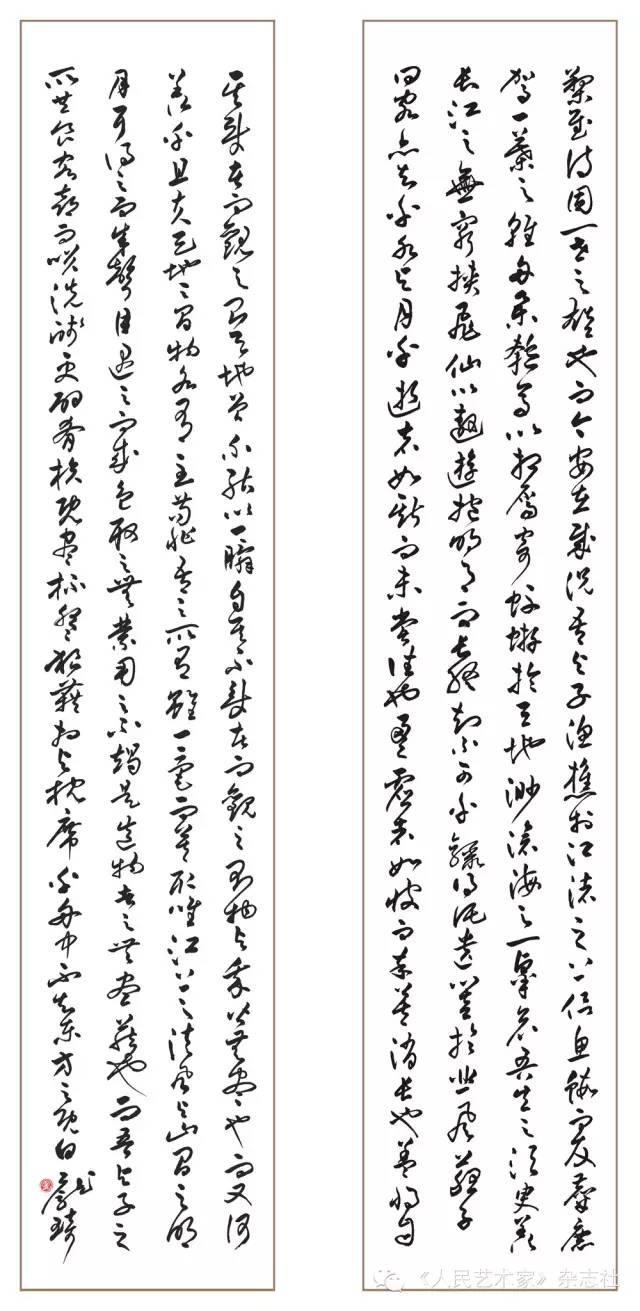 槊賦詩固一世之雄也而今安在哉況吾與子漁樵於江渚之上侶魚蝦而友麋鹿
駕一葉之扁舟舉匏尊以相屬寄蜉蝣於天地渺滄海之一粟哀吾生之須臾羨
長江之無窮挾飛仙以遨遊抱明月而長終知不可乎驟得託遺響於悲風蘇子
曰客亦知乎水與月乎逝者如斯而未嘗往也盈虛者如彼而卒莫消長也蓋將自
其變者而觀之則天地曾不能以一瞬自其不變者而觀之則物與我皆無盡也而又何
羨乎且夫天地之間物各有主苟非吾之所有雖一毫而莫取唯江上之清風與山間之明
月耳得之而為聲目遇之而成色取之無禁用之不竭是造物者之無盡藏也而吾與子之
所共食客喜而笑洗盞更酌肴核既盡杯盤狼藉相與枕席乎舟中不知東方之既白
《人民艺术家》杂志社